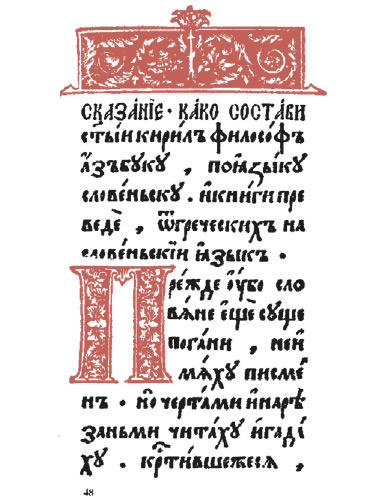 сказа́нїе · ка́ко соста́ви
ст҃ы́и кири́лъ філосо́фъ
а҆́збꙋкꙋ , по ꙗ҆зы́кꙋ
слове́ньскꙋ . и҆ кни́ги пре
ведѐ , ѿ гре́ческихъ на
слове́ньскїи ꙗ҆зы́къ .
Пре́жде ᲂу҆́бо сло
вѧ́не є҆щѐ сꙋ́ще
пога́ни , не и҆
мѧ́хꙋ писме́
нъ · но̀ черта́ми и҆ нарѣ́
заньми чита́хꙋ и҆ гада́
хꙋ . кр҃ти́вшежесѧ ,
48